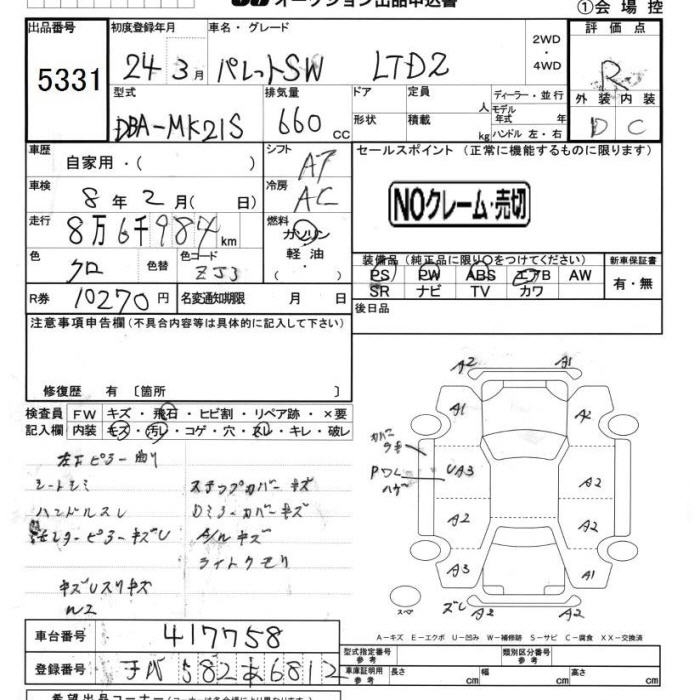 オークション出品申込書
①会場控
出品番号 初度登録年月 車名・グレード 評価点
5331 24年3月 パレットSW LTD2 2WD・4WD R
型式 排気量 ドア 定員 ディーラー・並行 外装 内装
DBA-MK21S 660cc 形状 積載 人 kg モデル年式 年 ハンドル 左・右 D C
車歴 自家用・( ) シフト AT セールスポイント (正常に機能するものに限ります)
車検 8年2月( 日) 冷房 AC NOクレーム・売切
走行 8万6千984km 燃料 ガソリン 軽油・
装備品(純正品に限り○をつけてください) 新車保証書
色 クロ 色替 色コード ZJ3 PS PW ABS エアB AW 有・無
SR ナビ TV カワ
R券 10270円 名変通知期限 月 日 後日品
注意事項申告欄(不具合内容等は具体的に記入して下さい)
修復歴 有 〔箇所 〕
検査員 FW キズ・飛石・ヒビ割・リペア跡・×要
記入欄 内装 キズ・汚レ・コゲ・穴・スレ・キレ・破レ
左下ピラー曲り
シートシミ ステップカバーキズ
ハンドルスレ Dミラーカバーキズ
センターピラーキズU A/Wキズ
ライトクモリ
キズUスリキズ
W2
A2 A1
A1 A2
カバー
PDL UA3 A2
A2 A2
A3 A1
スペ ズレ A2 A2
A-キズ E-エクボ U-凹み W-補修跡 S-サビ C-腐食 XX-交換済
車台番号 417758
型式指定番号 参考 類別区分番号 参考
登録番号 582 6812
車庫証明用 参考 長さ cm 幅 cm 高さ cm
希望出品コーナー